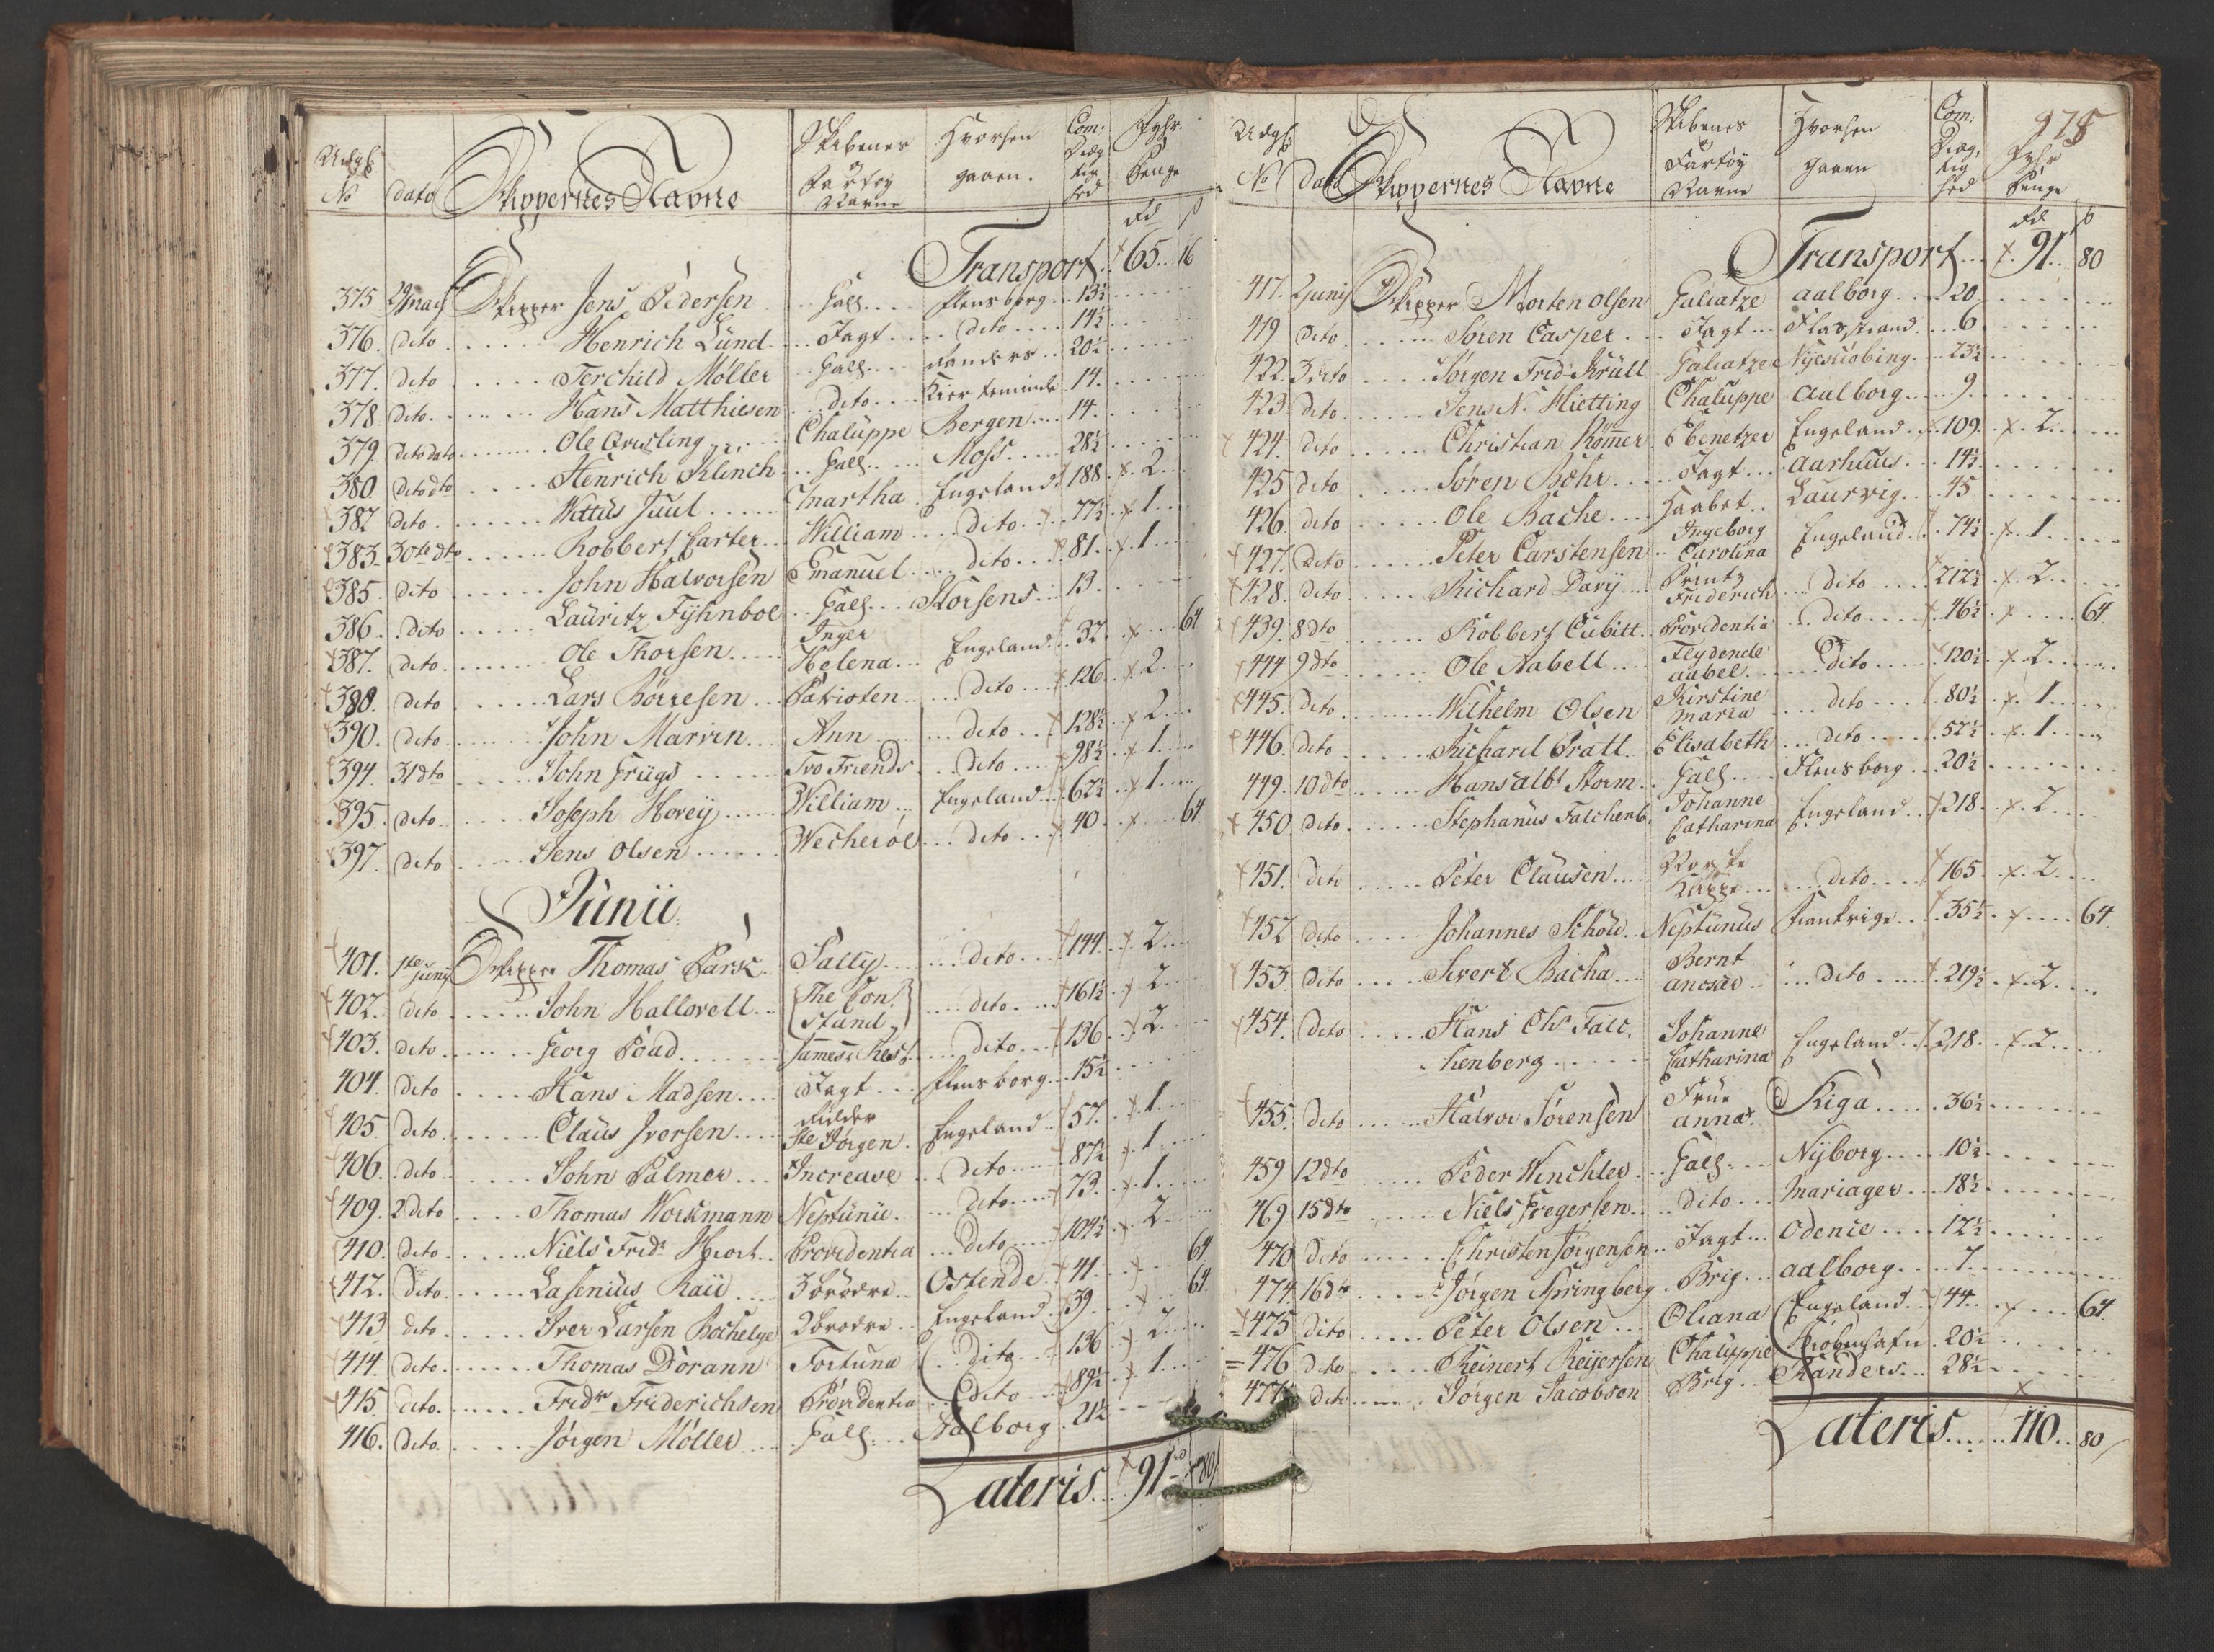 Udgf. No dato Skippernes Navne Skibenes og Fartøy Navne Hvorhen gaaen. Com: Dræg tig hed Fyhr Penge
rd ß
Transport .. 65 .. 16
375 29 Maij Skipper Jens Pedersen Gall. Flensborg 13½
376. dito Henrich Lund Jagt dito 14½
377. dito Terchild Møller Gall. Randers 20½
378 dito. Hans Matthiesen dito Kierteminde 14.
379. dito dato Ole Qvisling Chaluppe Bergen 14.
380 dito dto Henrich Klinch Gall. Moss 28½
382 dito Vittus Juul Martha Engeland 188 2
383. 30te dto Robbert Carter William dito 77½ 1
385. dito John Halvorsen Emanuel dito 81. 1
386. dito Lauritz Fyhnboe Gall. Horsens 13.
387. dito Ole Thorsen Inger Helena Engeland 32 64
388. dito Lars Börresen Patrioten dito 126 2
390. dito John Marvin Ann dito 128½ 2
394. 31 dto John Grügs Tvo Friends dito 98½ 1
395. dito Joseph Hovey William Engeland 62½ 1
397. dito Jens Olsen Wecheröe dito 40 64
Junii
401. 1ste Junij Skipper Thomas Park Sally dito 144 2
402. dito John Hallovell The Con stand dito 161½ 2
403. dito Georg Poad James & Rest dito 136 2
404. dito Hans Madsen Jagt Flensborg 15½
405 dito Claus Iversen Ridder Ste Jörgen Engeland 57. 1
406. dito John Palmer Increase dito 87½ 1
409. 2 dito Thomas Workmann Neptunü. dito 73. 1
410. dito Niels Fridr Hiort Providentia dito 104½ 2
412. dito Lasenius Raü 3 brødre Ostende 41 64
413 dito Iver Larsen Bochelye 2 brødre Engeland 39 64
414. dito Thomas Dorann Fortuna dito 136 2
415. dito Fridr Friderichsen Providentia dito 89½ 1
416. dito Jörgen Møller Gall. Aalborg 21½
Lateris 91 rd 80
978
Udgf. No dato Skippernes Navne Skibenes Fartøy Navne Hvorhen gaaen Com: Dræg, tig hed Fyhr Penge
rd ß
Transport 91 .. 80
417. 2 Junij Skipper Morten Olsen Galeatze Aalborg 20
419 dito Sören Casper Jagt Fladstrand 6
422. 3 dito Jörgen Frid. Krüll Galeatze Nyekiöbing 23½
423 dito Jens N. Hietting Chaluppe Aalborg 9
424. dito Christian Römer Ebenetzer Engeland 109. 2
425 dito Sören Bohr Jagt Aarhuus 14½
426. dito Ole Bache Haabet Laurvig 45
427. dito Peter Carstensen Ingeborg Carolina Engeland 74½ 1
428. dito Richard Davy Printz Friderich dito 212½ 2
439. 8 dto Robbert Cubitt Providentia dito 46½ 64
444 9 dto Ole Aabell Flydende Aabel dito 120½ 2
445. dito Wilhelm Olsen Kirstine Maria dito 80½ 1
446. dito Richard Pratt Elisabeth dito 52½ 1
449. 10 dto Hans Albt Storm Gall Flensborg 20½
450. dito Stephanus Falchenb. Johanne Catharina Engeland 218. 2
451. dito Peter Clausen Norske Kuppe dito 165 2
452 dito Johannes Schöld Neptunus Frankrige 35½ 64
453 dito Sivert Bacha Bernt Ancker dito 219½ 2
454. dito Hans Chr Falc.
henberg Johanne Catharina Engeland 218 2
455. dito Halvor Sörensen Frue Anna Riga 36½
459 12 dto Peder Winchler Gall. Nyborg 10½
469. 15 dto Niels Gregersen dito Mariager 18½
470 dito Christen Jörgensen Jagt Odence 12½
474 16 dto Jörgen Springberg Brig Aalborg 7
475 dito Peter Olsen Oliana Engeland 44 64
476 dito Reinert Reijersen Chaluppe Kiöbenhafn 20½
477 dito Jörgen Jacobsen Brig Randers 28½
Lateris 110 .. 80